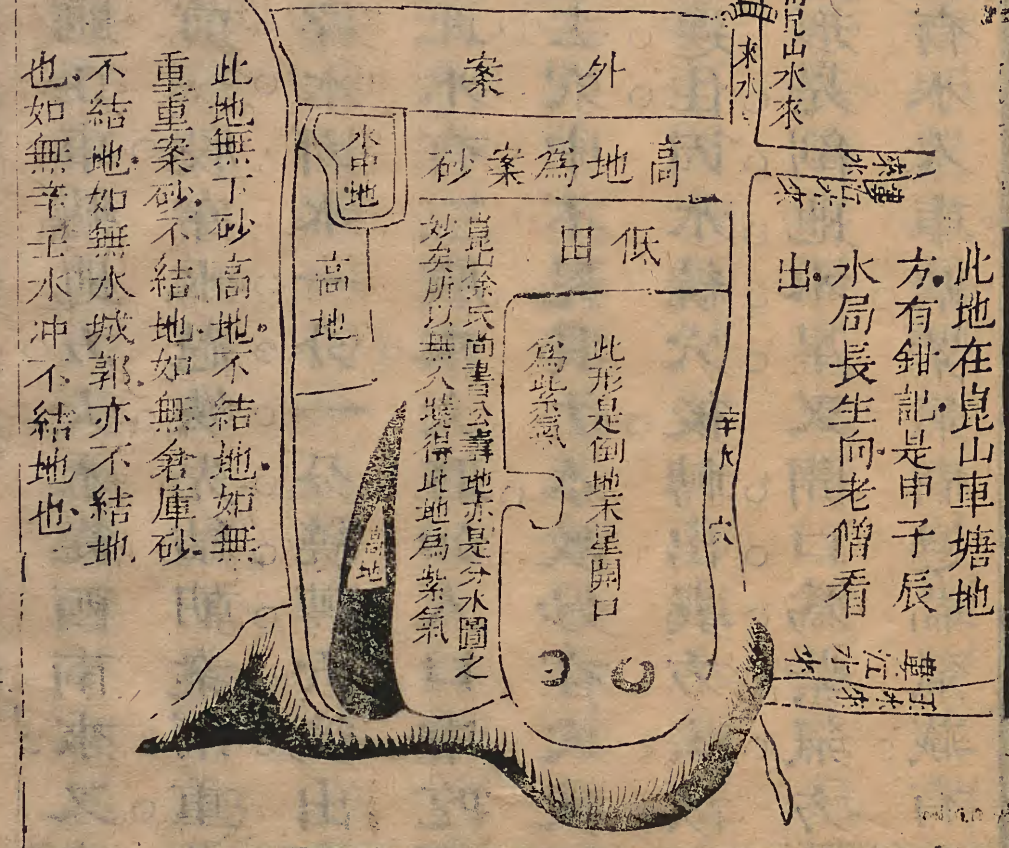 崑山水來
來水
此地在崑山車塘地
方有鉗記是申子辰
水局長生向老僧看
出
外案
高地爲案砂
水中地
低田
高地
此形是倒地木星開口
爲此紫氣
崑山徐氏尚書公壽地亦是分水圖之
妙矣所以無人曉得此地爲紫氣
高地
辛水
穴
此地無下砂高地不結地如無
重重案砂不結地如無倉庫砂
不結地如無水城郭亦不結地
也如無辛壬水冲不結地也